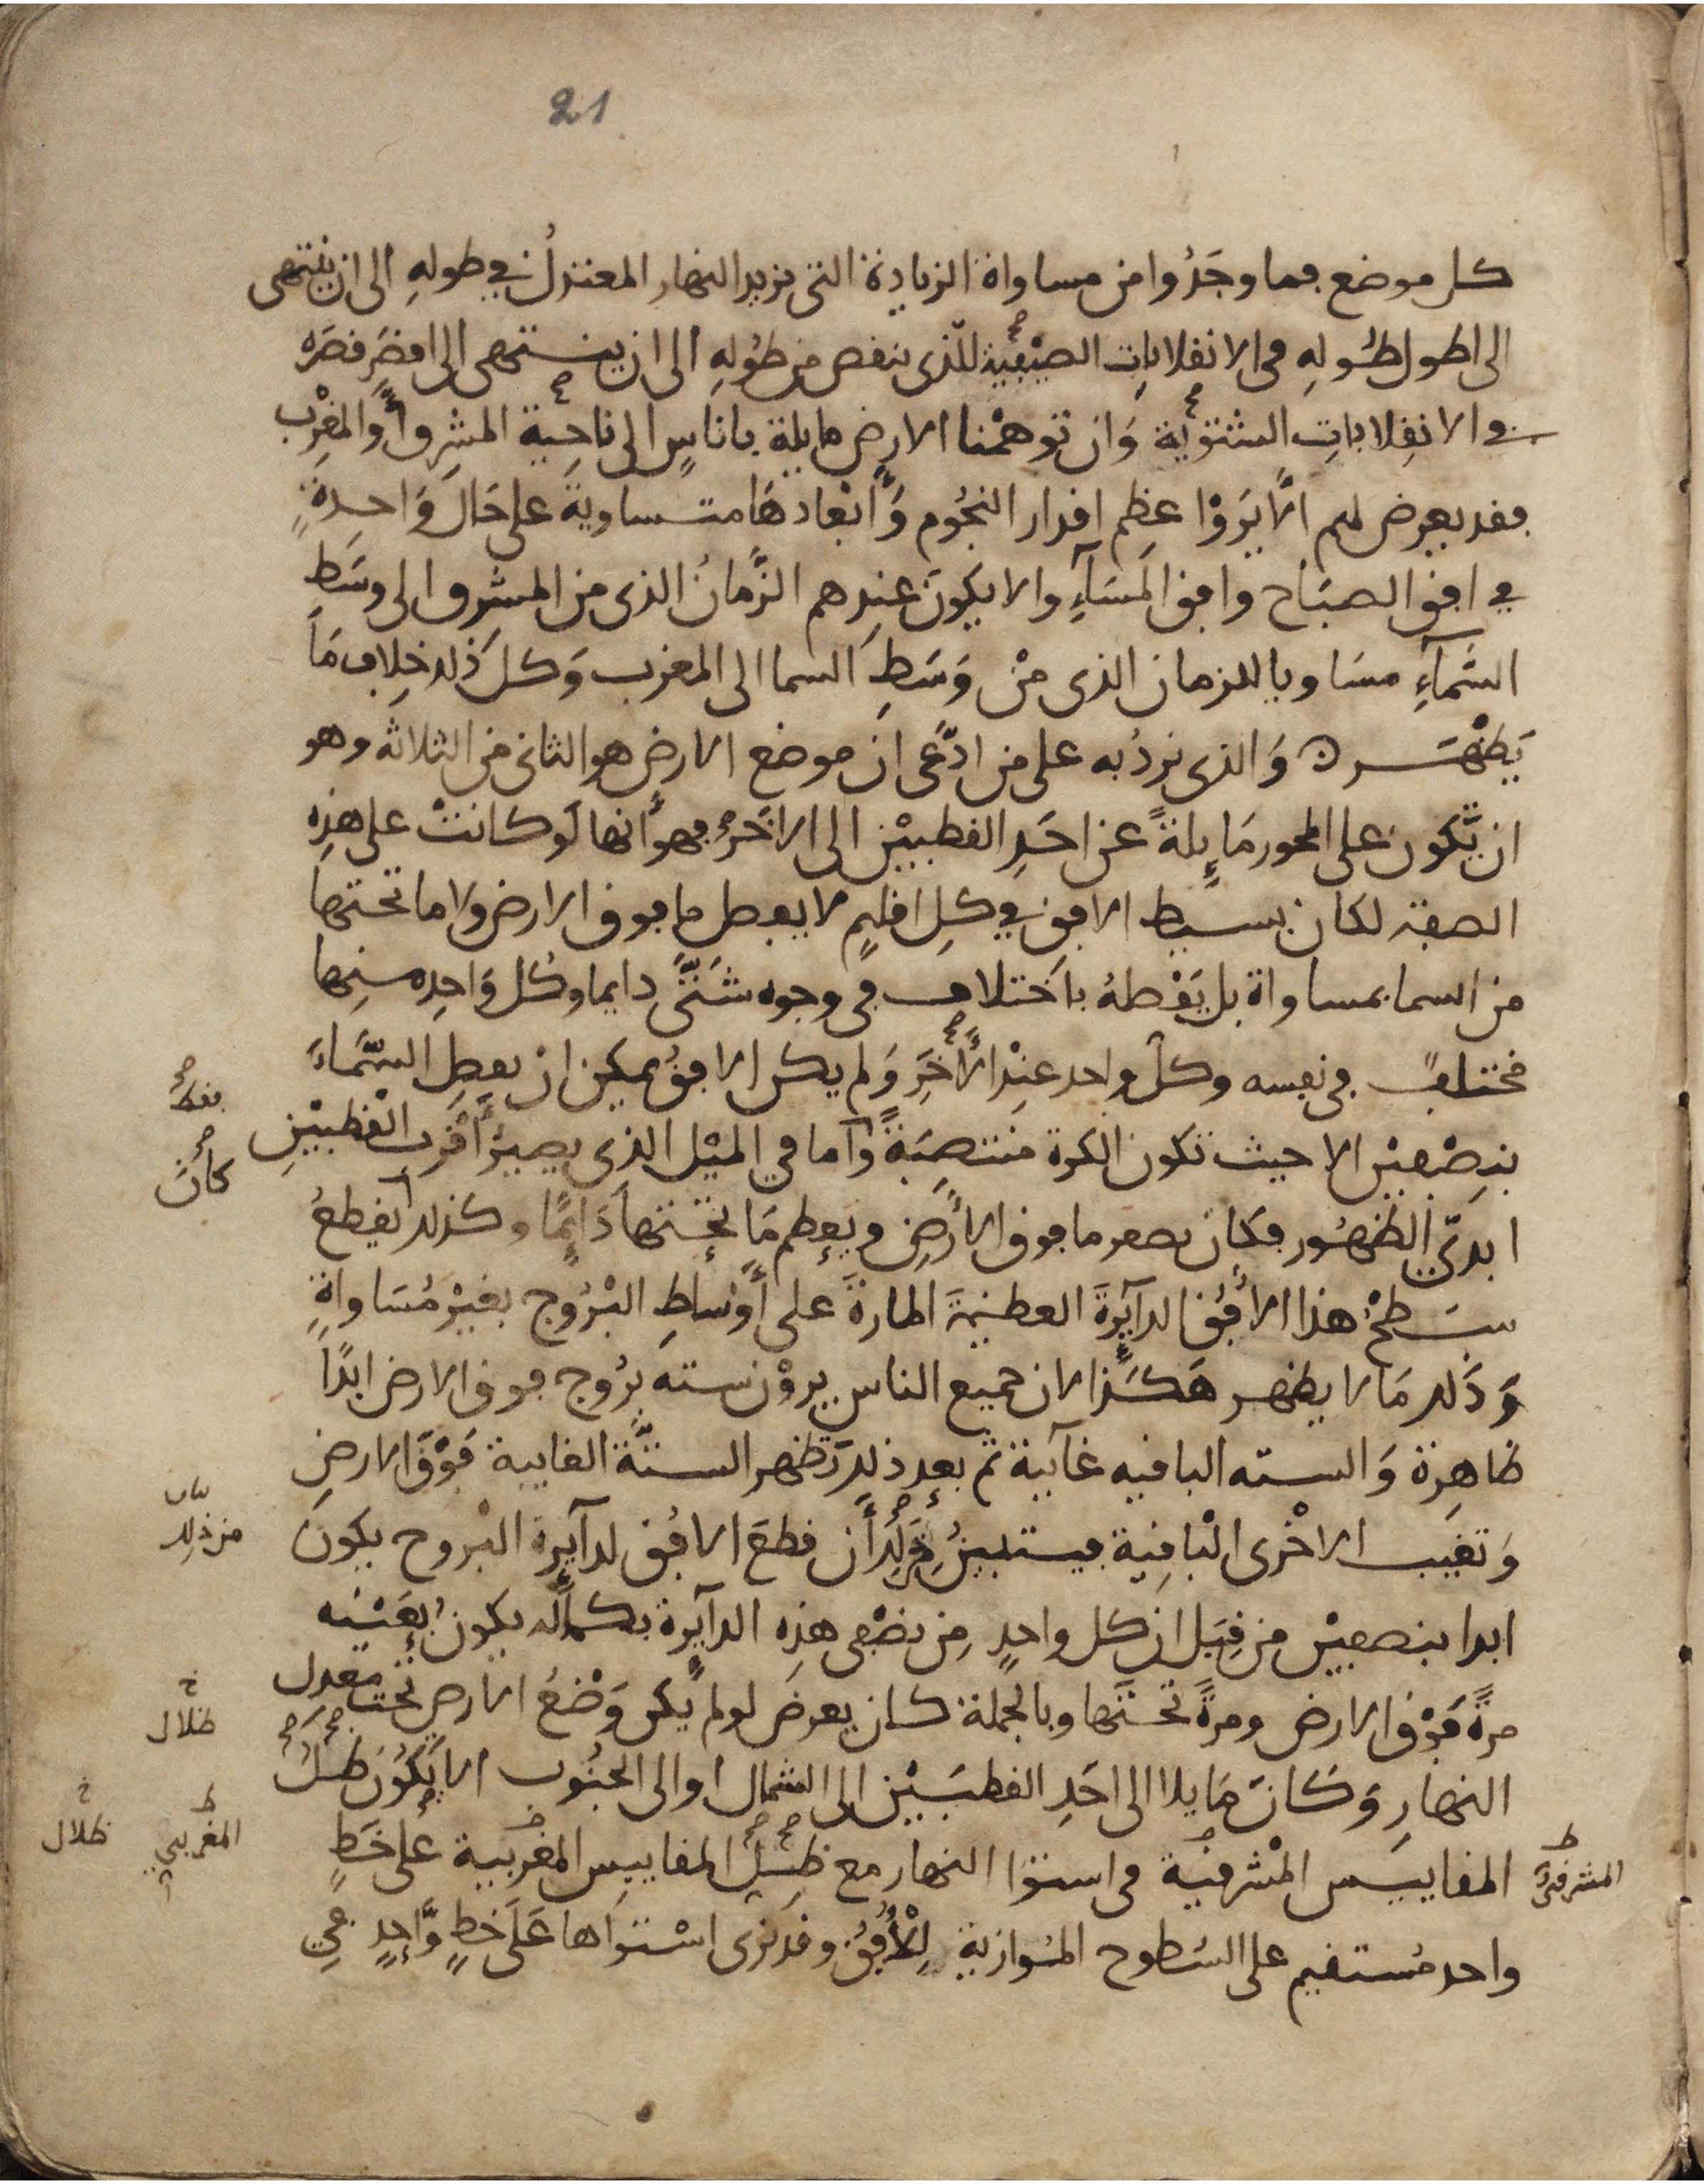 21
كل موضع فما وجَدُوا من مساواة الزيادة التى يزيد النهار المعتدلُ في طولهِ الى ان ينتهى
الى اطول طُولهِ فى الانقلاباتِ الصَيْفيّة للّذى ينقص من طُولهِ الى ان ينتهى الى اقصَرِ قصَره
في الانقِلاباتِ الشتوية وَان توهمْنا الارض مايلة باناسٍ الى ناحِية المشرِق أو المغْرِب
فقد يعرض لهم الّا يَرَوْا عِظم اقدار النجُوم وَأبعادهَا متساوية على حَال وَاحِدةٍ
في افق الصبَاح وافق المَسَآءِ والا يكونَ عندهم الزَّمانُ الذى من المشرق الى وسَطِ
السَّمآءِ مسَاويا للزمان الذى منْ وَسَطِ السما الى المغرب وَكل ذلك خِلاف مَا
يَظْهَر ه وَالذى نردُ به على من ادّعى ان موضع الارض هو الثانى من الثلاثه وهو
ان تكون على المحور مَايلةً عن احَدِ القطبيْن الى الاخَر فهو أنها لَو كانتْ على هذِه
الصفة لكان بسيط الافق في كلِ اقليمٍ لا يفصل ما فوق الارض ولا ما تحتها
من السما بمساواة بل يَقْطعُهُ باختلاف فى وجوه شَتَّى دايما وكُل وَاحِده منها
مختلف فى نفسه وكل واحد عِنْد الأخَرِ وَلم يكن الافقُ يمكن ان يفصِل السَّمَاءَ
فقد
بنِصْفيْن الا حيث تكون الكرة منتصِبَةً وأما في الميْل الذى يصِيرُ أقْرب القطبيْنِ
كانَ
ابديّ الظهُور فكان يصغر ما فوق الأرْضِ ويعظم مَا تحْتها دَايمًا وكذلك يقطعُ
سَطحُ هذا الأفُق الدآيرَةَ العظيمَةَ المارةَ على أوْسَاطِ البُرُوج بغيْر مُسَاواةٍ
وَذَلك مَا لا يظهر هَكَذا لان جميع الناس يروْن سته بُرُوج فوق الارض ابدًا
ظاهِرة وَالسته الباقيه غآيبة ثم بعد ذلك تظهر الستَّة الغايبة فَوْقَ الارض
وَتغيب الاخْرى البَاقِية فيستبينُ مِن ذلِكَ أن قطعَ الافُق لدآيرة البُروج يكونَ
من ذلك
ابدا بنصفيْن من قِبَل ان كل واحدٍ مِن نصْفى هذِه الدآيرة بكماله يكون بِعَيْنِه
مرةً فَوْق الارض ومرةً تحتَها وبالجملة كان يعرض لو لم يكن وَضْعُ الارض تحْت معدل
ظلال
النهارِ وَكَانَ مَايلا الى احَدِ القطبَيْن الى الشمال او الى الجنُوب الا يَكُونَ ظِلُ
المشرقى المقاييس المشْرقيّة فى استوا النهار مع ظِلِّ المقاييس المغْربية على خَطٍ
المغربى ظلال
واحد مُستقيم على السُطوح المُوازية لِلْأُفُق وقد نرى اسْتواها عَلَى خَطٍ وَّاحِدٍ فِي